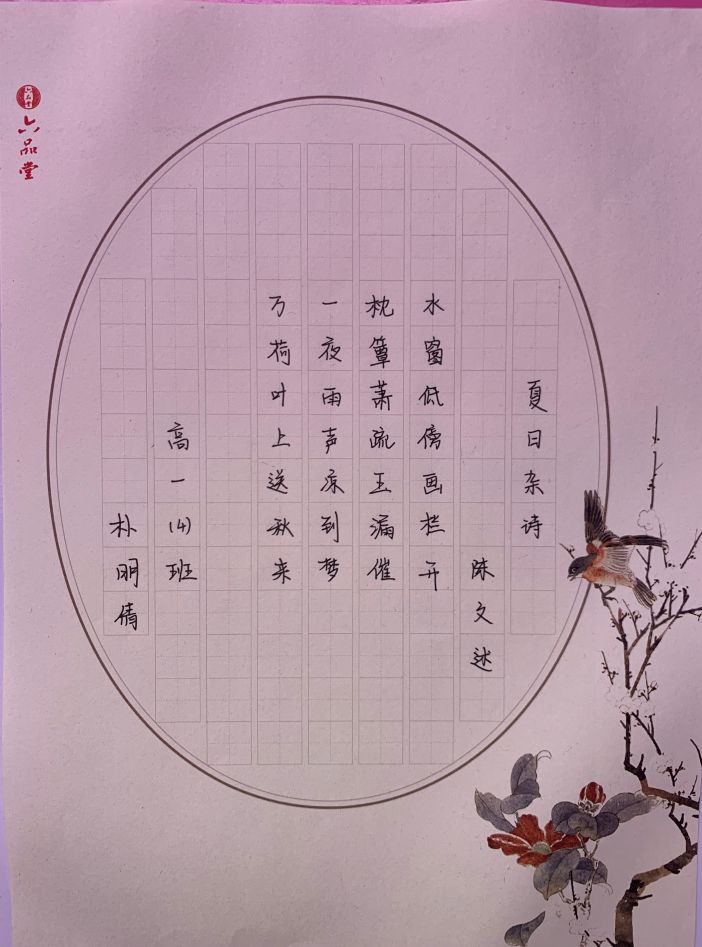 夏日杂诗
陈文述
水窗低傍画栏开
枕簟萧疏玉漏催
一夜雨声凉到梦
万荷叶上送秋来
高一(4)班
朴明倩
六品堂